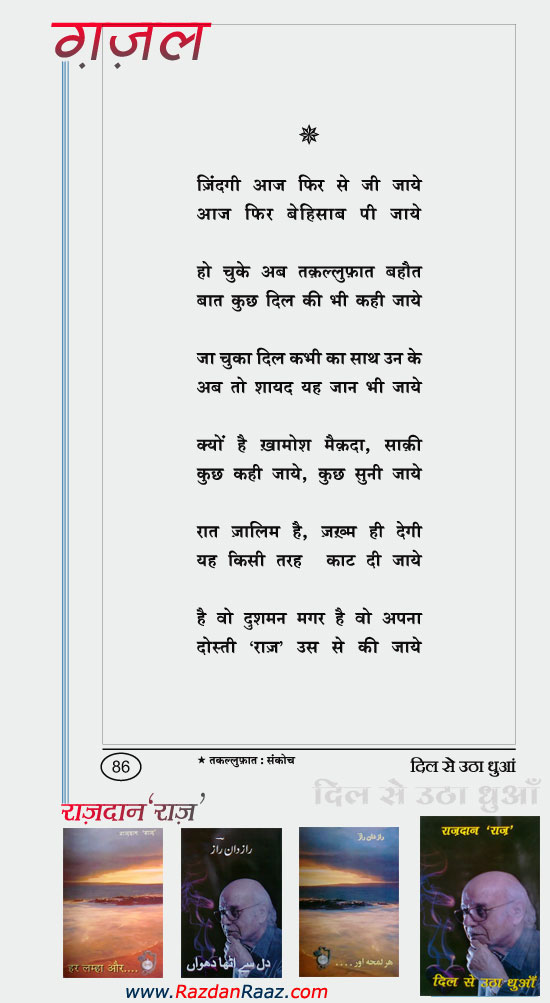 ग़ज़ल
ज़िंदगी आज फिर से जी जाये
आज फिर बेहिसाब पी जाये
हो चुके अब तक़ल्लुफ़ात बहौत
बात कुछ दिल की भी कही जाये
जा चुका दिल कभी का साथ उन के
अब तो शायद यह जान भी जाये
क्यों है ख़ामोश मैक़दा, साक़ी
कुछ कही जाये, कुछ सुनी जाये
रात ज़ालिम है, ज़ख़्म ही देगी
यह किसी तरह काट दी जाये
है वो दुशमन मगर है वो अपना
दोस्ती ‘राज़’ उस से की जाये
86
★ तकल्लुफ़ात : संकोच
दिल से उठा धुआं
दिल से उठा धुआँ
राज़दान ‘राज़’
राज़दान ‘राज़’
हर लम्हा और....
رازدان راز
دل سے اٹھا دھواں
رازدان راز
ہر لمحہ اور....
राज़दान ‘राज़’
दिल से उठा धुआँ
www.RazdanRaaz.com